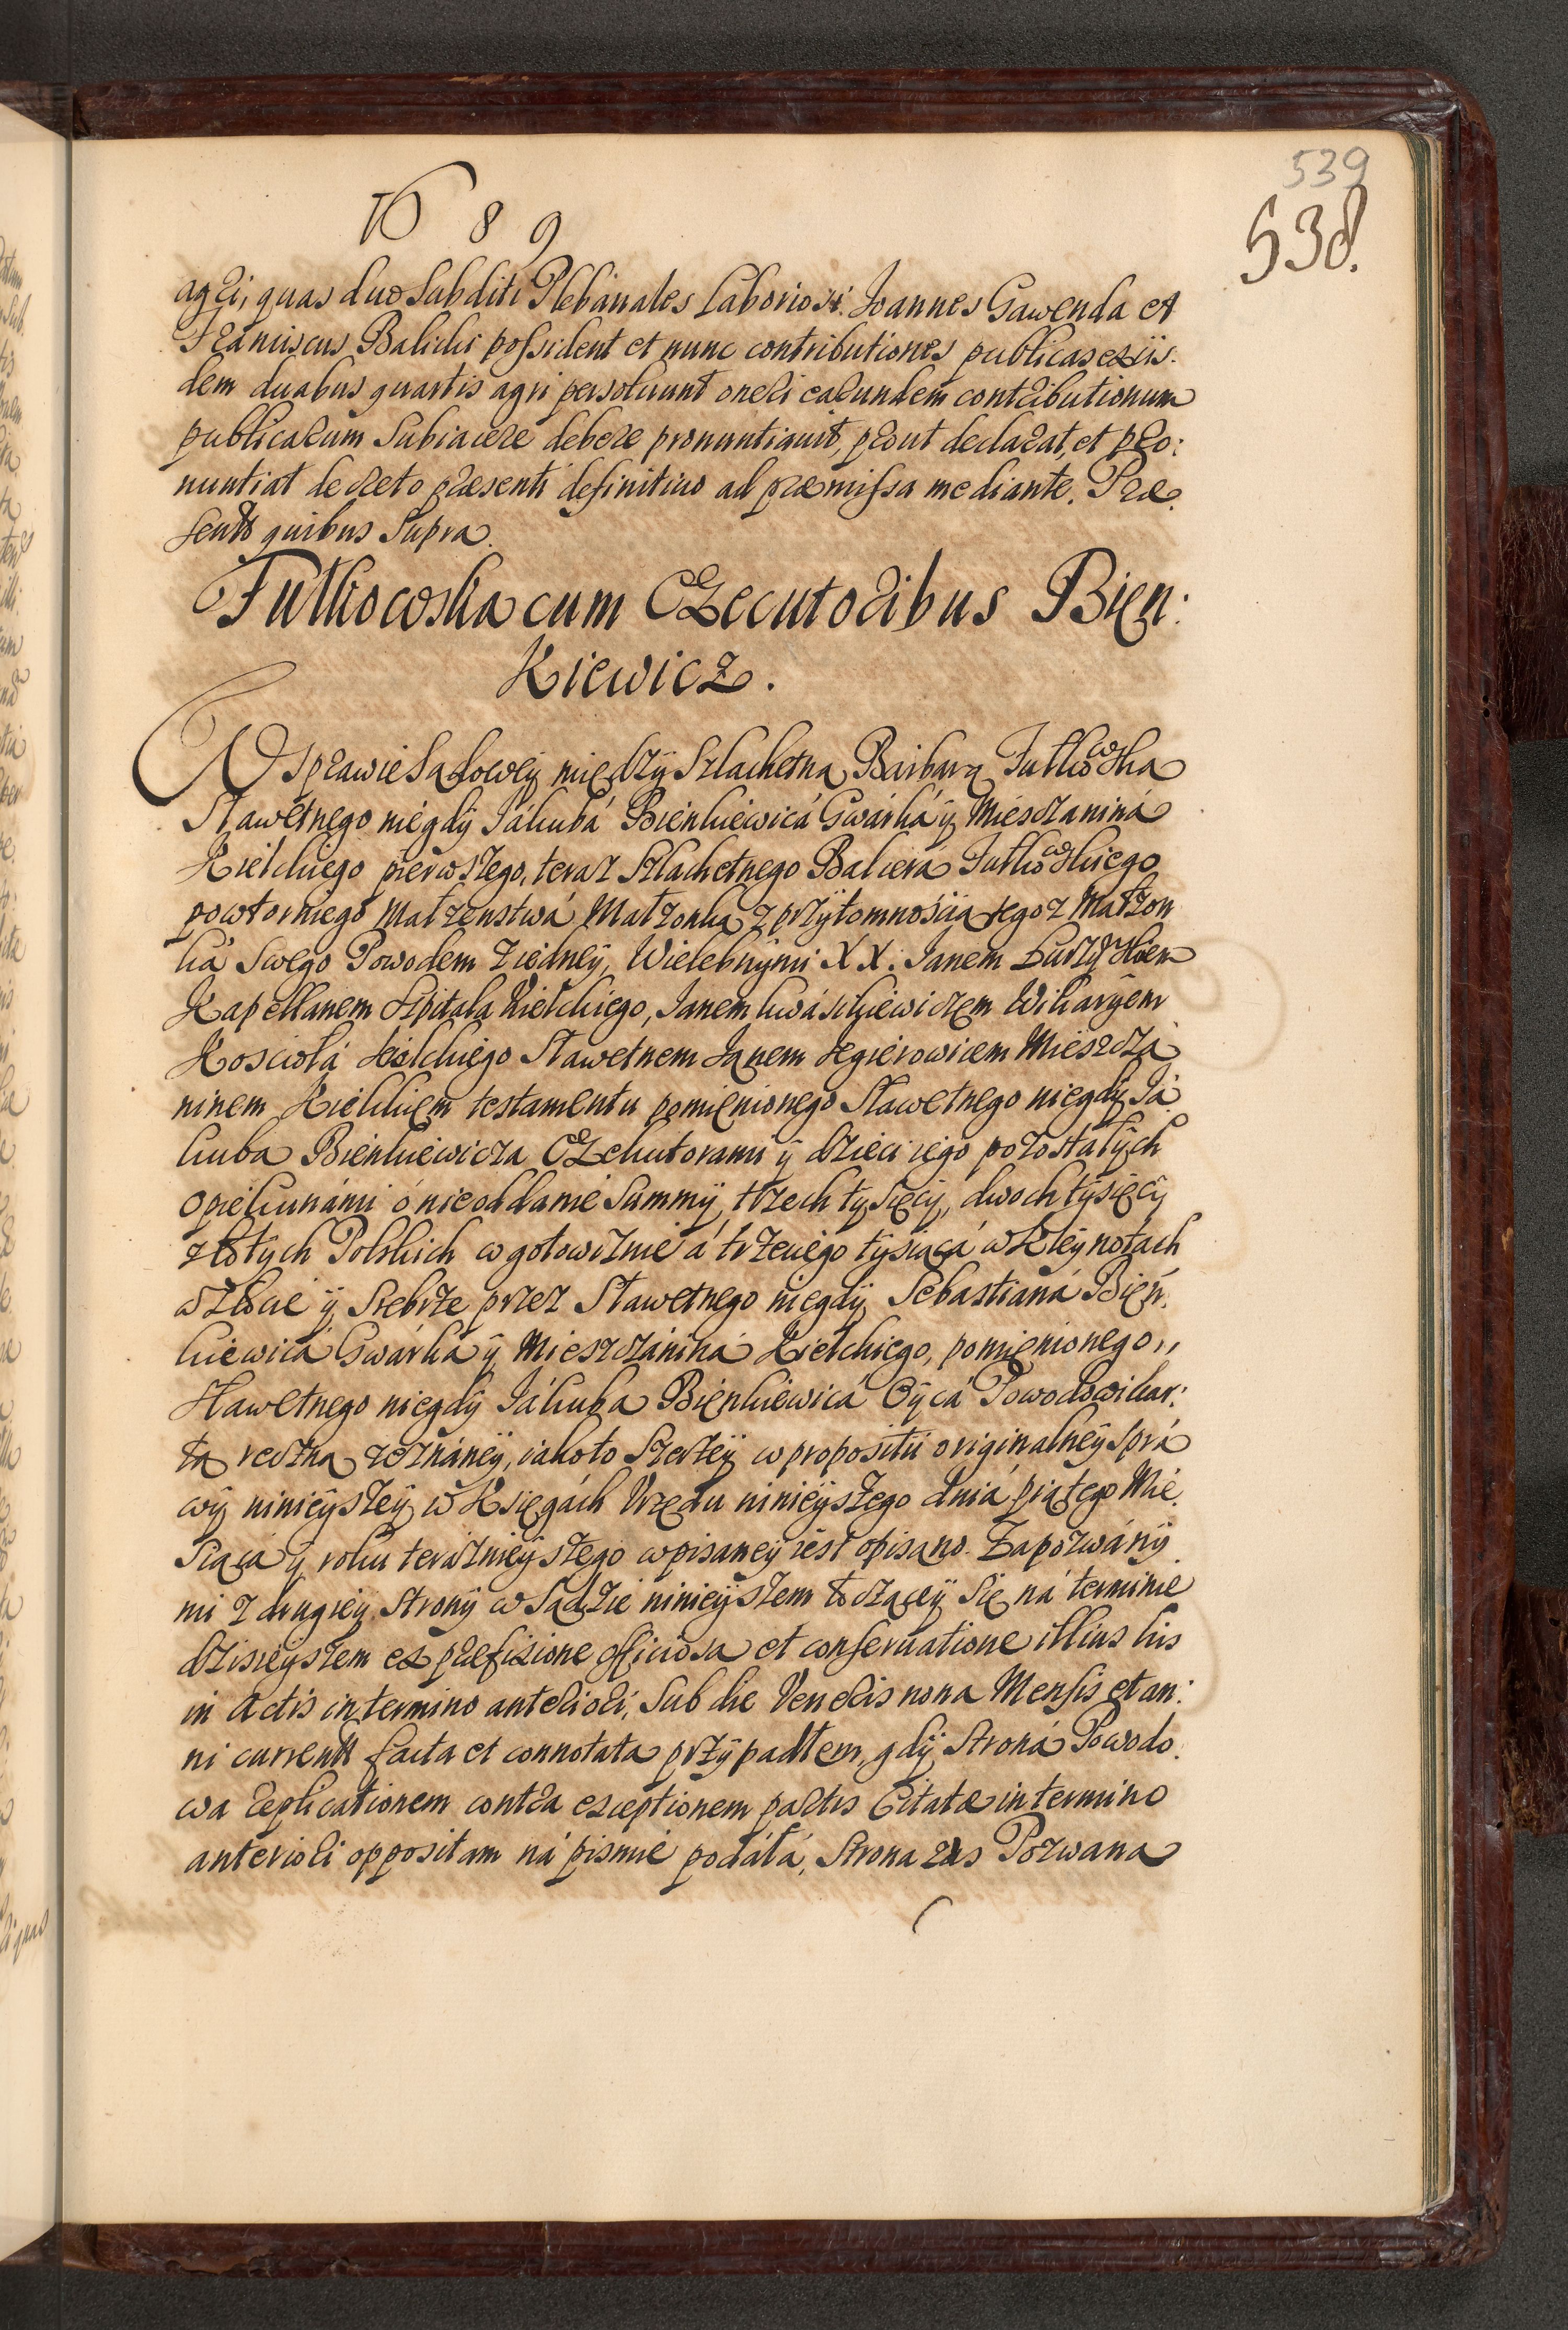 539
538.
1689
agri, quas duo Subditi Plebanales Laboriosi: Joannes Gawenda et
Franciscus Balicki possident et nunc contributiones publicas ex iis:
dem duabus quartis agri persolvunt oneri earundem contributionum
publicarum Subiacere debere pronuntiavit, prout declarat, et pro:
nuntiat decreto præsenti definitivo ad præmissa mediante. Præ
sentt quibus Supra.
Futkowska cum Executoribus Bien:
kiewicz.
W Sprawie Sądowey między Szlachetną Barbarą Futkowską
Sławetnego niegdÿ Jákubá Bienkiewicá Gwárká ÿ Miesczaniná
Kielckiego pierwszego, teraz Szlachetnego Baliera Futkowskiego
powtornego Małzenstwá Małzonką z przÿtomnością tegoz Małzon
ká Swego Powodem z iedneÿ, Wielebnÿmi XX. Janem
Kapellanem Szpitala Kielckiego, Janem Kwásniewiczem Wikarÿem
Kosciołá Kielckiego Sławetnem Janem Jegierowicem Mieszczá
ninem Kielckiem testamentu pomienionego Sławetnego niegdÿ Já
kuba Bienkiewicza Exekutorami ÿ dzieci iego pozostałÿch
Opiekunámi o nieoddanie Summÿ, trzech tÿsięcÿ, dwoch tÿsięcÿ
złotÿch Polskich w gotowiznie á trzeciego tÿsiącá w Kleÿnotach
w złocie ÿ Srebrze przez Sławetnego niegdÿ Sebastianá Bień:
kiewicá Gwárká ÿ Mieszczániná Kielckiego, pomienionego,,
Sławetnego niegdÿ Jákuba Bienkiewicá Oÿcá Powodowi kar:
tą ręczną zeznáneÿ, iakoto Szerzeÿ w propositii originalneÿ Sprá
wÿ ninieÿszeÿ w Księgách Vrzędu ninieÿszego dniá piątego Mie
Siącá ÿ roku teráznieÿszego wpisaneÿ iest opisano. Zapozwánÿ
mi z drugieÿ Stronÿ w Sądzie ninieÿszem toczącey Się ná terminie
dzisieÿszem ex præfixione officiosa et conservatione illius his
in Actis in termino anteriori, Sub die Veneris nona Mensis et an:
ni currentt facta et connotata przÿpadłem, gdÿ Stroná Powodo
wa replicationem contra exceptionem partis Citatæ in termino
anteriori oppositam ná pismie podáłá, Strona zas Pozwana